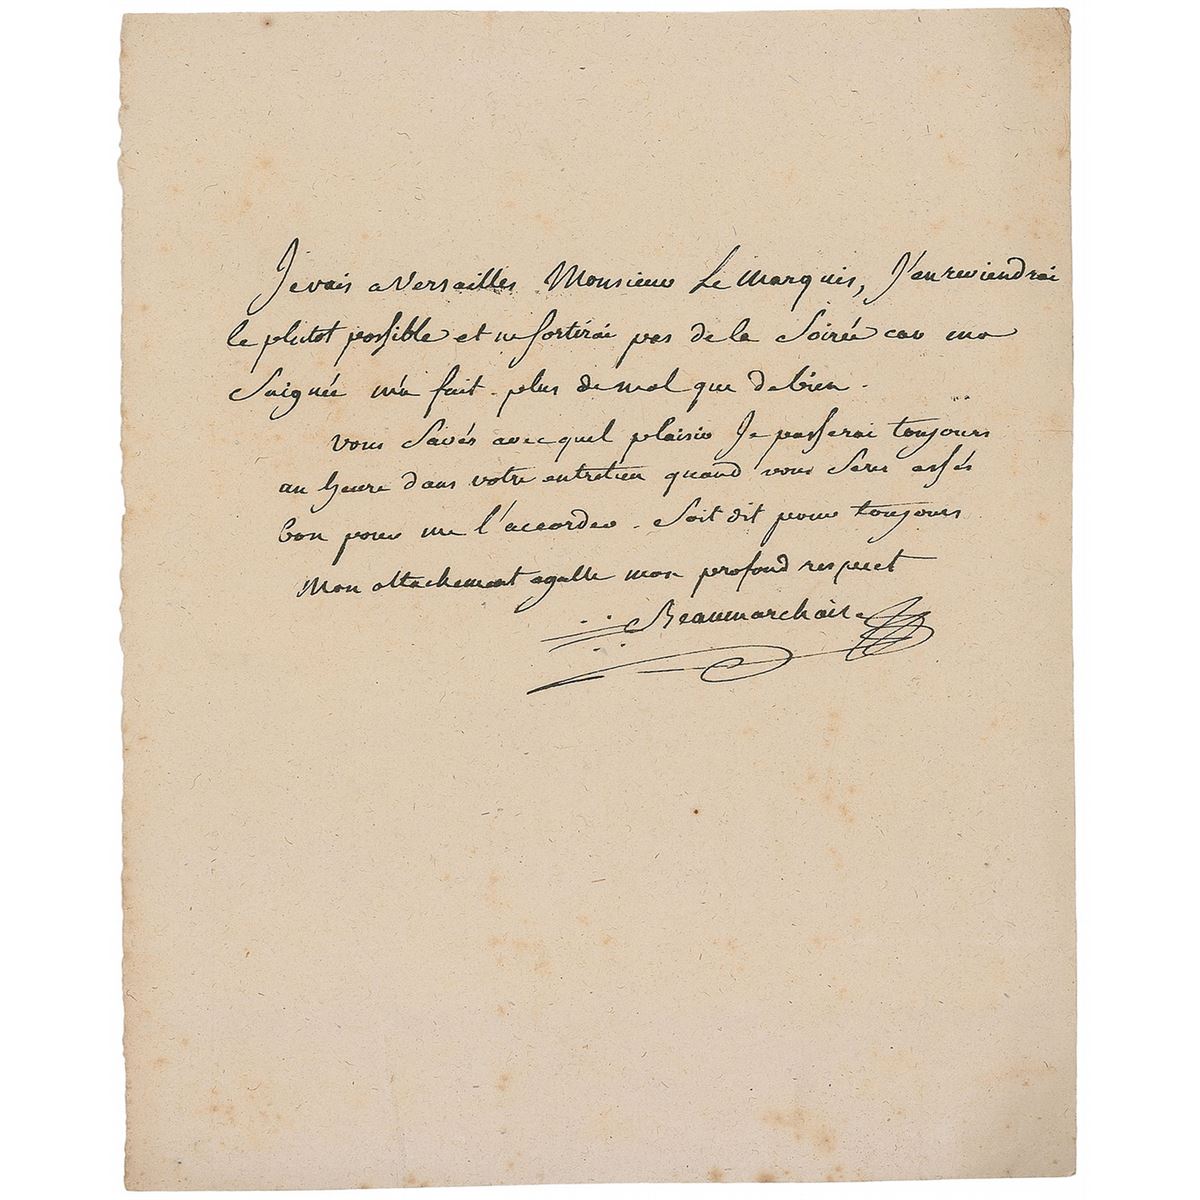 Je vais a Versailles Monsieur Le Marquis, J'en reviendrai
le plutot possible et ne sortirai pas de la Soirée car ma
Saignée m'a fait plus de mal que de bien.
vous Savés avec quel plaisir Je passerai toujours
un heure dans votre entretien quand vous Serés assés
bon pour me l'accorder. Soit dit pour toujours
Mon attachement egalle mon profond respect
Beaumarchais